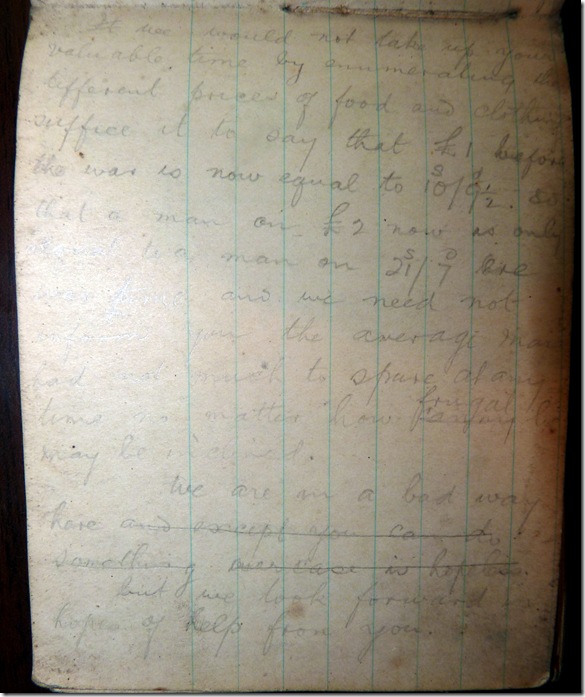 It we would not take up your
valuable time by enumerating the
different prices of food and clothing
suffice it to say that £1 before
the war is now equal to 10s/9½d. so
that a man on £2 now is only
equal to a man on 21s/7d
and we need not
inform you the average man
had not much to spare at any
time no matter how frugal he
may be inclined.
We are in a bad way
here and except you can do
something our case is hopeless.
but we look forward in
hopes of help from you.